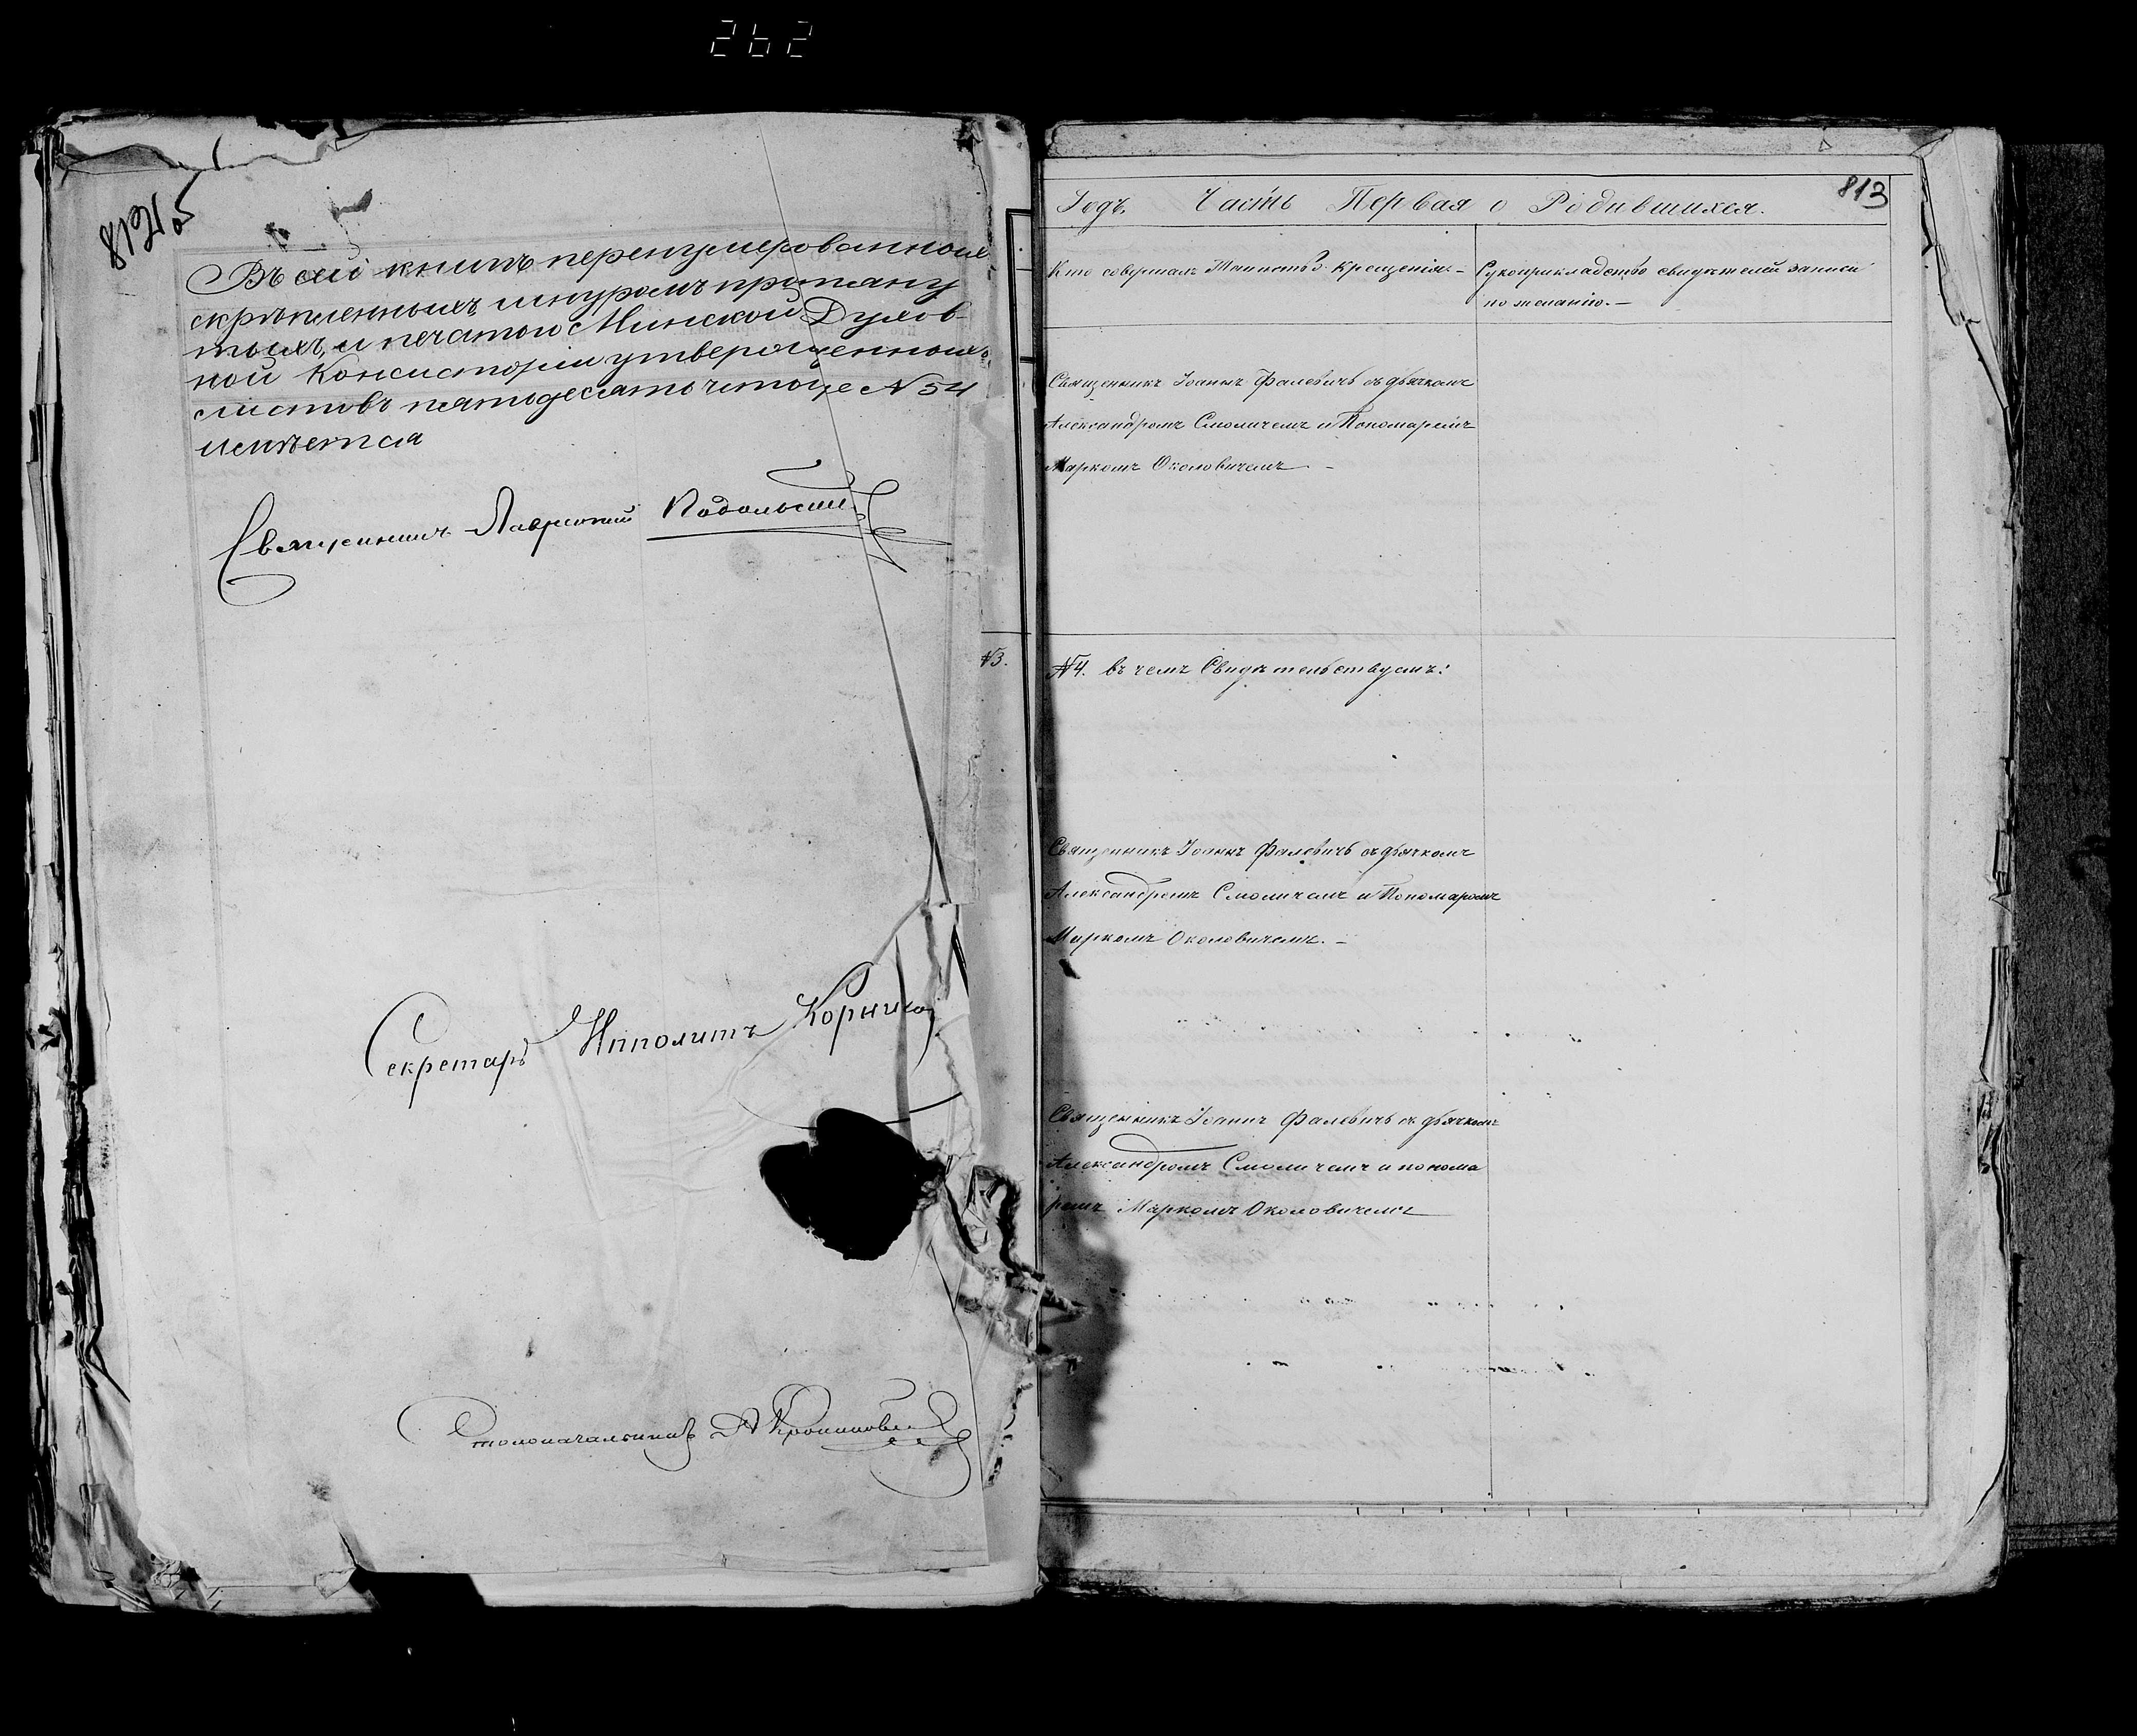 262
812 об
Въ сей книгѣ перенумерованныхъ
скрѣпленныхъ шнуромъ притяну
тыхъ, и печатью Минской Духов-
ной Консисторіи утвержденныхъ
листовъ пятьдесятъ четыре N 54
имѣется
Священникъ Лаврентій Подольскій
Секретарь Ипполитъ
Столоначальникъ
N3.
813
Годъ. Часть Первая о Родившихся.
Кто совершалъ Таинство Крещенія.-
Рукоприкладство свидѣтелей записи
по желанію.-
Священникъ Іоаннъ Фалевичь съ дьячкомъ
Александромъ Смоличемъ и Пономаремъ
Маркомъ Околовичемъ. -
N4. въ чемъ Свидѣтельствуемъ:
Священникъ Іоаннъ Фалевичь съ дьячкомъ
Александромъ Смоличемъ и Пономаромъ
Маркомъ Околовичемъ. -
Священникъ Іоаннъ Фалевичь съ дьячкомъ
Александромъ Смоличемъ и понома
ремъ Маркомъ Околовичемъ